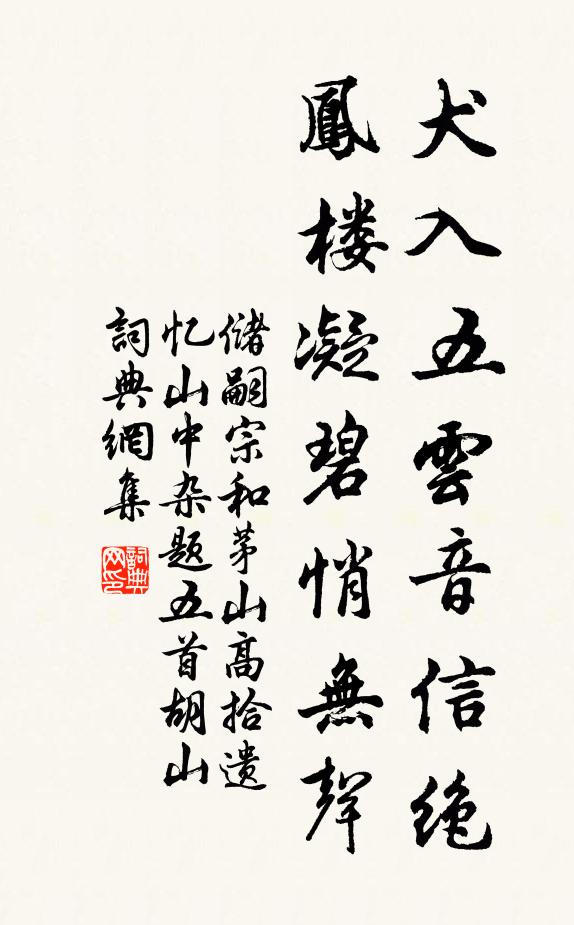 犬入五雲音信絶
鳳楼凝碧悄無聲
儲嗣宗和茅山高拾遗
忆山中杂题五首胡山
詞典網集
詞典网印